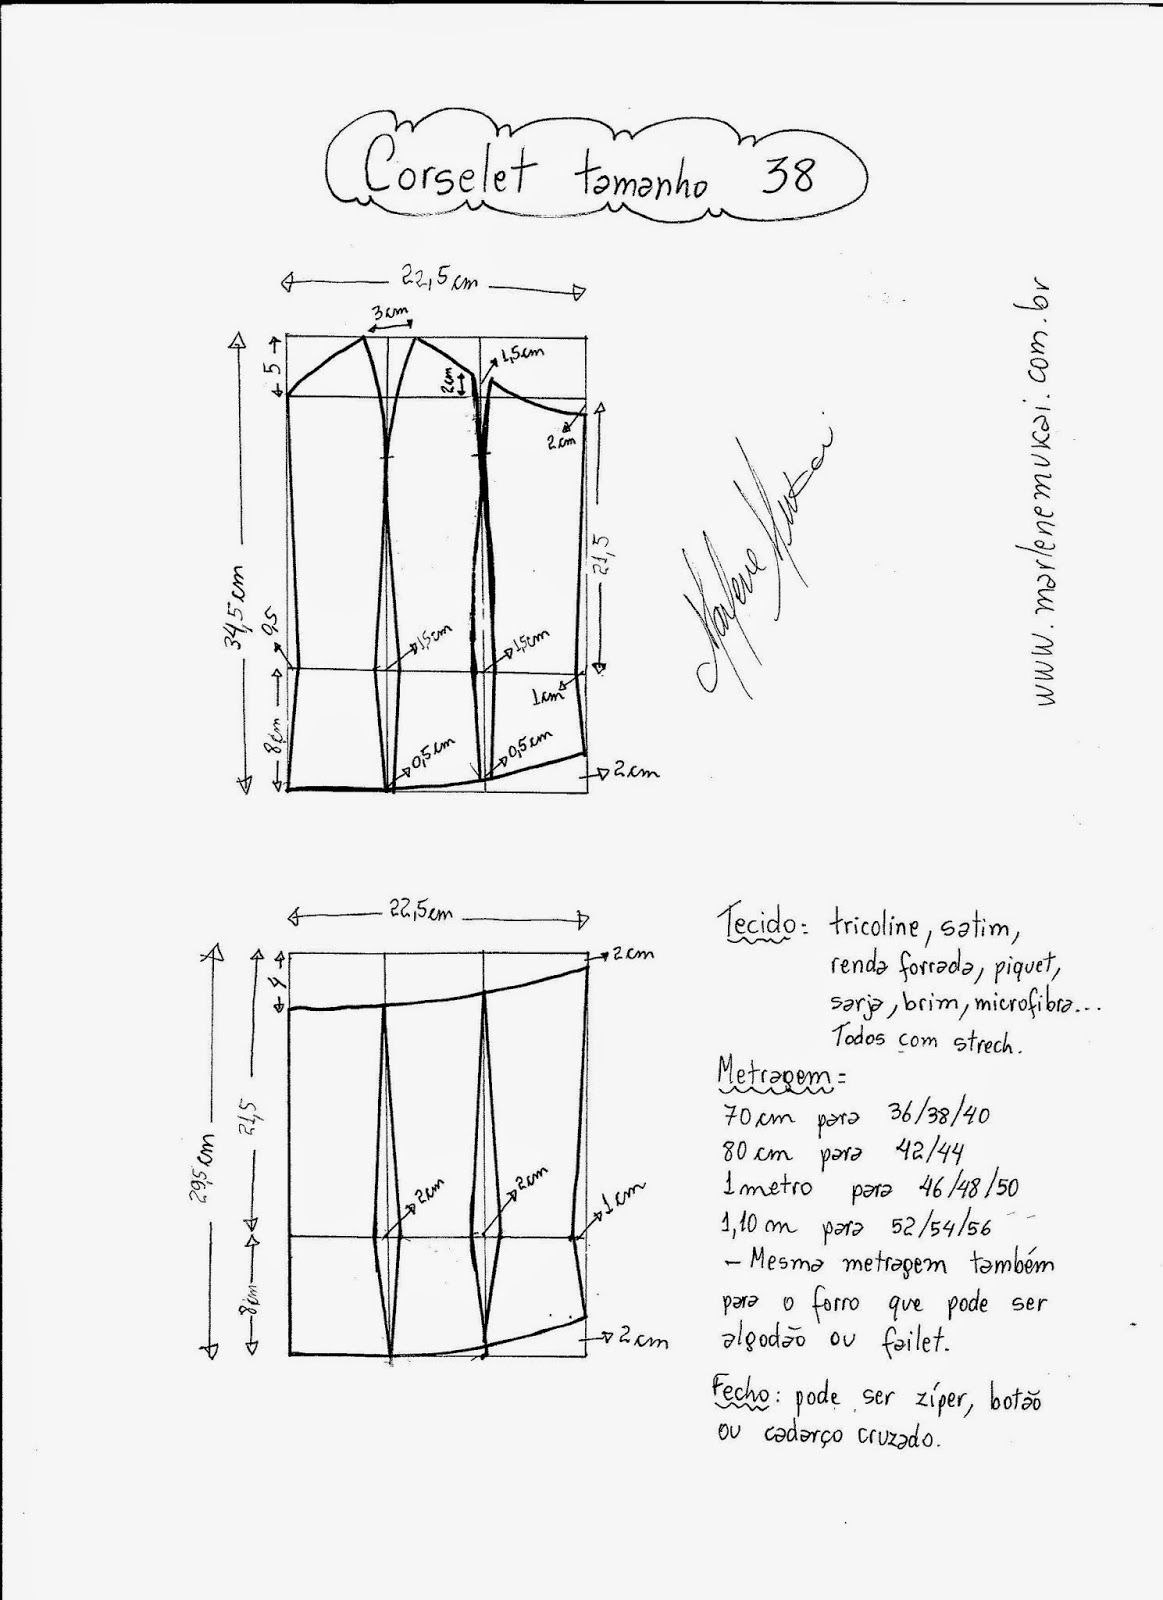 Corselet tamanho 38
22,5cm
3cm
5
1,5cm
2cm
2cm
34,5cm
21,5
1,5cm
1,5cm
1cm
8cm
0,5cm
0,5cm
2cm
www.marlenemukai.com.br
Marlene Mukai
22,5cm
2cm
4
29,5cm
21,5
2cm
2cm
1cm
8cm
2cm
Tecido: tricoline, satim,
renda forrada, piquet,
sarja, brim, microfibra...
Todos com strech.
Metragem:
70cm para 36/38/40
80cm para 42/44
1metro para 46/48/50
1,10m para 52/54/56
- Mesma metragem também
para o forro que pode ser
algodão ou failet.
Fecho: pode ser zíper, botão
ou cadarço cruzado.